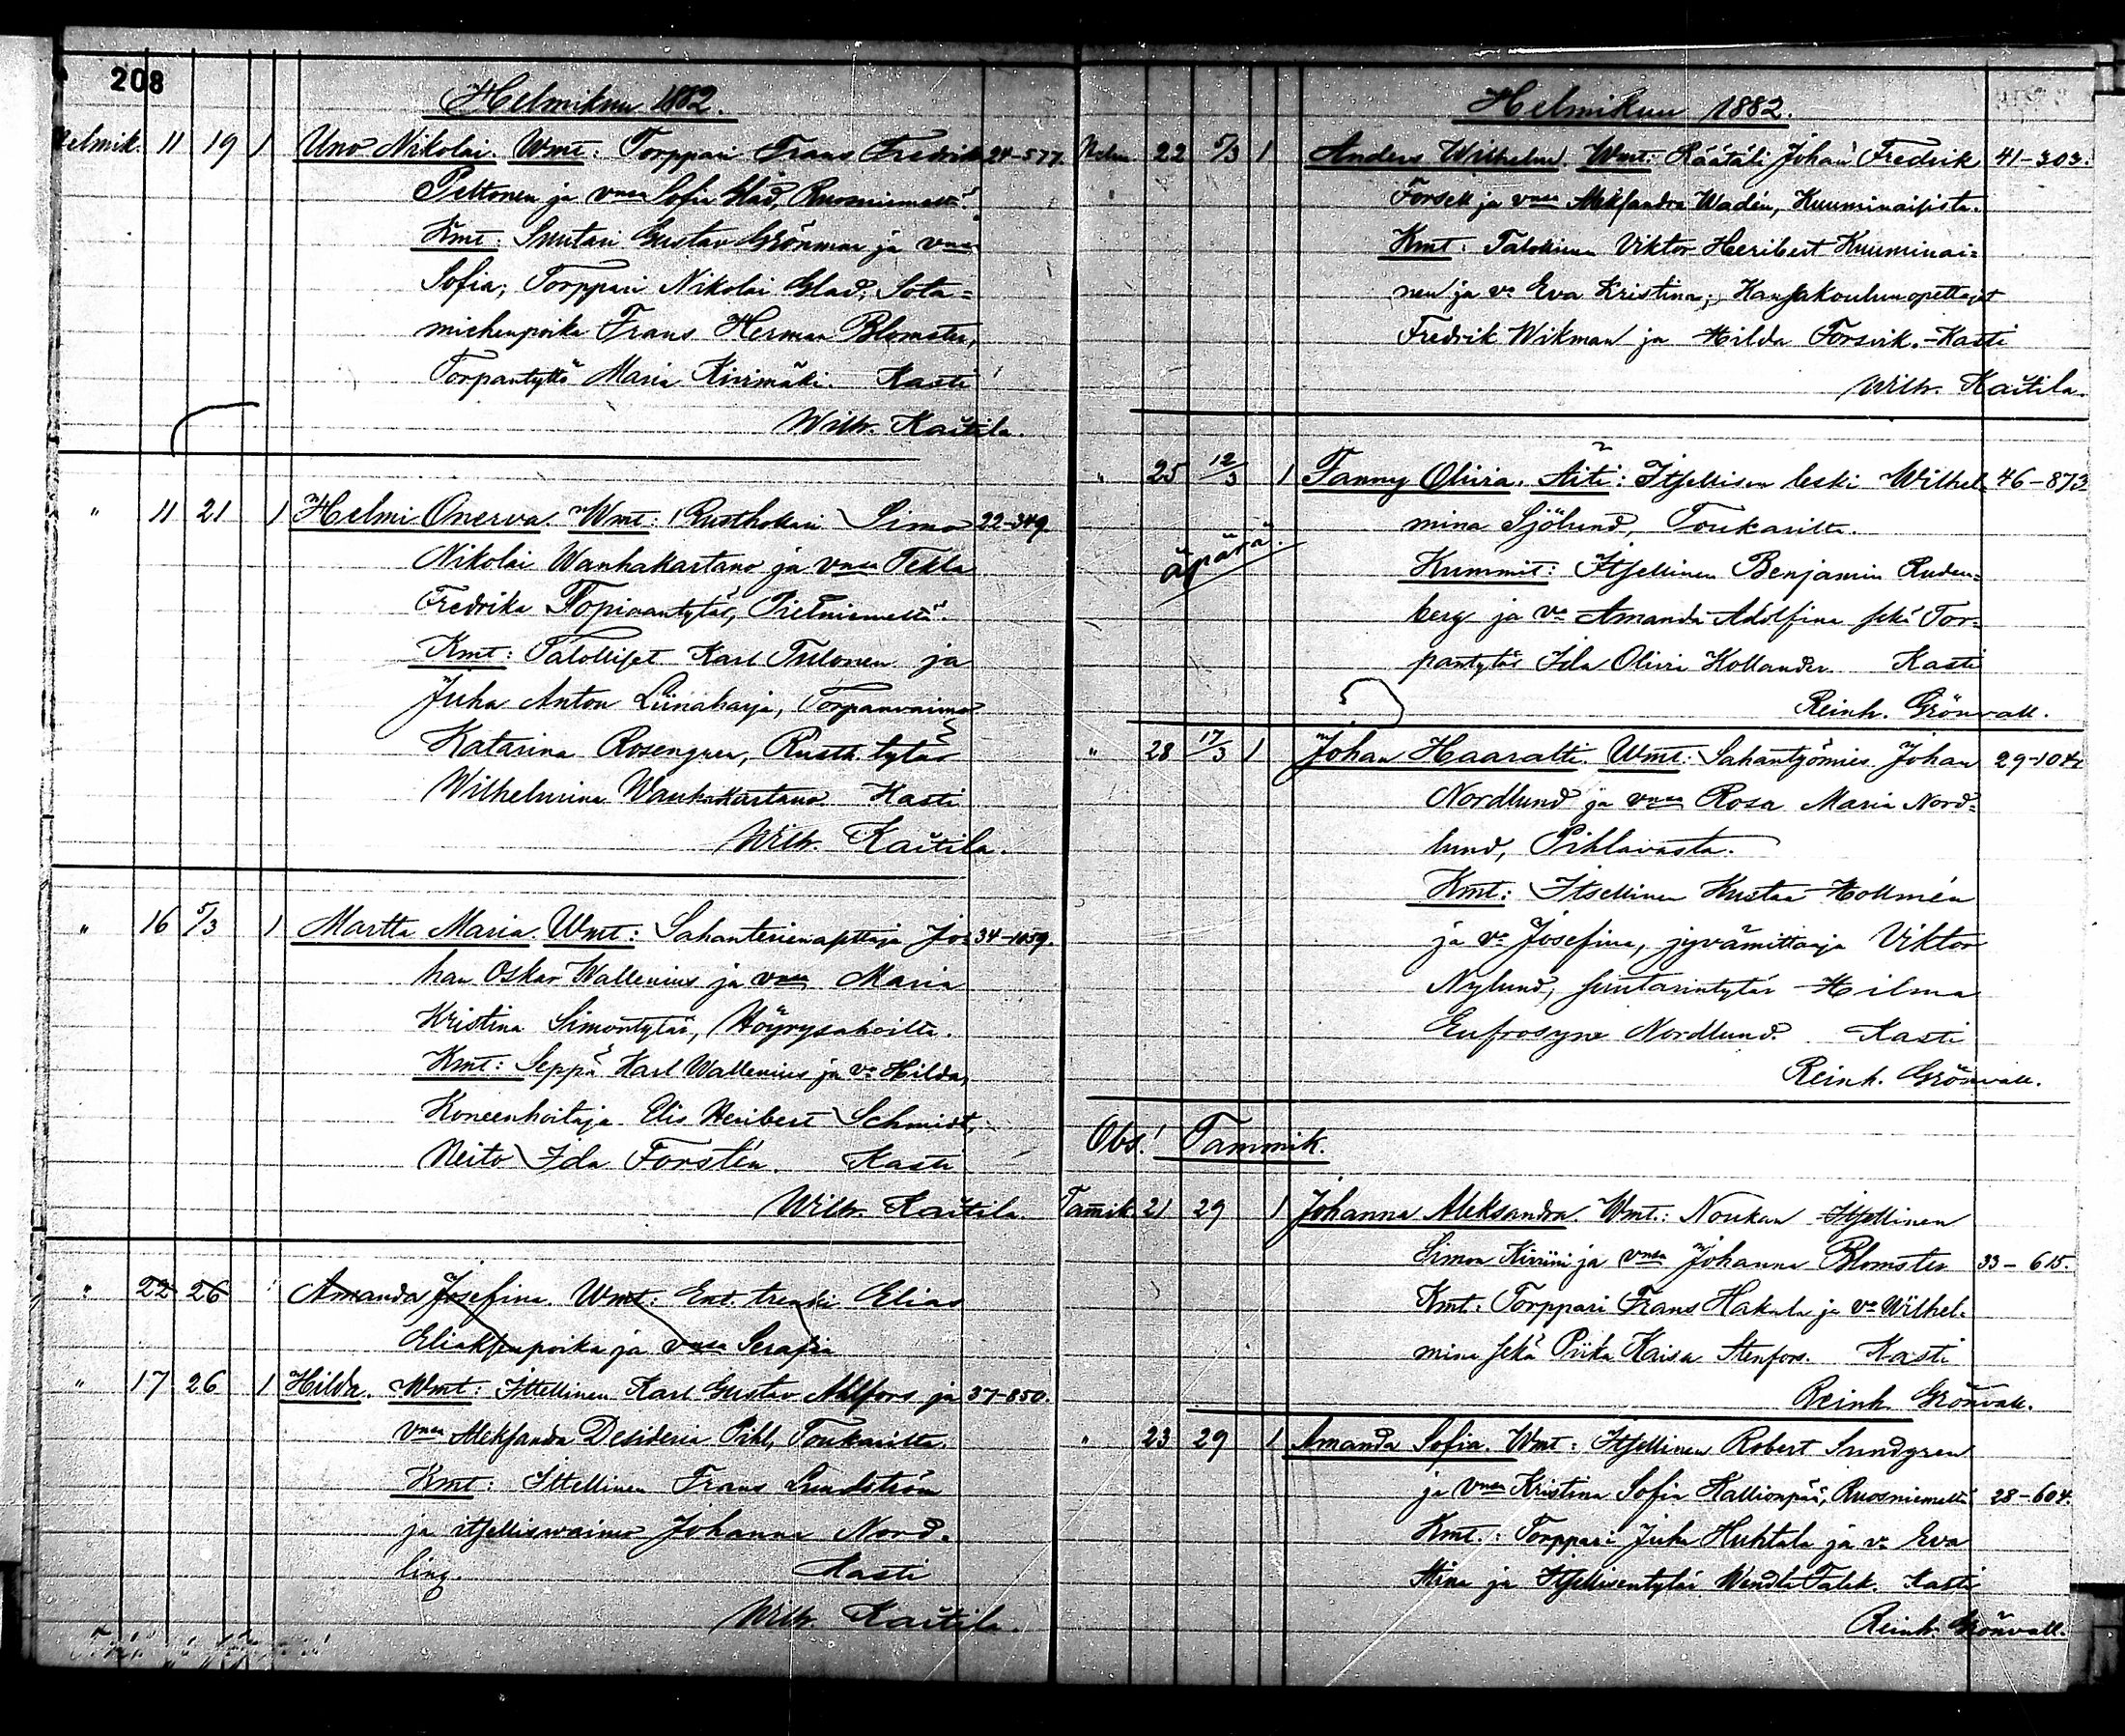 208
Helmikuu 1882.
Helmik. 11 19 1 Uno Nikolai. Wmt: Torppari Frans Fredrik 24-577.
Peltonen ja vmsa Sofia Glad, Ruosniemeltä.
Kmt: Suutari Gustav Grönmar ja vmsa
Sofia; Torppari Nikolai Glad; Sota=
miehenpoika Frans Herman Blomster,
Torpantyttö Maria Kivimäki. Kasti
Wilh. Kaitila.
" 11 21 1 Helmi Onerva. Wmt: Rusthollari Simo 22-349.
Nikolai Wanhakartano ja vmsa Tekla
Fredrika Topiaantytär, Pietniemeltä.
Kmt: Talolliset Karl Tulonen ja
Juha Anton Liinaharja, Torpanvaimo
Katarina Rosengren, Rusth. tytär
Wilhelmina Wanhakartano. Kasti
Wilh. Kaitila.
" 16 5/3 1 Martta Maria. Wmt: Sahanterienasettaja Jo= 34-1059.
han Oskar Wallenius ja vmsa Maria
Kristina Simontytär, Höyrysahoilta.
Kmt: Seppä Karl Wallenius ja vo Hilda,
Koneenhoitaja Elis Heribert Schmidt,
Neito Ida Forstén. Kasti
Wilh. Kaitila.
" 22 26 Amanda Josefina. Wmt: Ent. trenki Elias
Eliaksenpoika ja vmsa Serafia
" 17 26 1 Hilda. Wmt: Itsellinen Karl Gustav Ahlfors ja 37-850.
vmsa Aleksandra Desideria Pihl, Toukarilta.
Kmt: Itsellinen Frans Lundström
ja itsellisvaimo Johanna Nord=
ling. Kasti
Wilh. Kaitila.
Helmikuu 1882.
Helm. 22 5/3 1 Anders Wilhelm. Wmt: Räätäli Johan Fredrik 41-303.
Forsell ja vmsa Aleksandra Wadén, Kuuminaisista.
Kmt: Talollinen Viktor Heribert Kuuminai=
nen ja vo Eva Kristina; Kansakoulunopettajat
Fredrik Wikman ja Hilda Forsvik. - Kasti
Wilh. Kaitila.
" 25 12/3 1 Fanny Olivia. Äiti: Itsellisen leski Wilhel= 46-873
mina Sjölund, Toukarilta.
äpärä.
Kummit: Itsellinen Benjamin Ruden=
berg ja vo Amanda Adolfina sekä Tor=
pantytär Ida Olivia Hollander. Kasti
Reinh. Grönvall.
" 28 17/3 1 Johan Haaratti. Wmt: Sahantyömies Johan 29-1042
Nordlund ja vmsa Rosa Maria Nord=
lund, Pihlavasta.
Kmt: Itsellinen Kustaa Hollmén
ja vo Josefina, jyvämittaaja Viktor
Nylund, suutarintytär Hilma
Eufrosyne Nordlund. Kasti
Reinh. Grönvall.
Obs! Tammik.
Tamik. 21 29 1 Johanna Aleksandra. Wmt.: Noukan Itsellinen
Simon Kiviini ja vmsa Johanna Blomster 33-615.
Kmt: Torppari Frans Hakala ja vo Wilhel=
mina sekä Piika Kaisa Stenfors. Kasti
Reinh. Grönvall.
" 23 29 1 Amanda Sofia. Wmt: Itsellinen Robert Sundgren
ja vmsa Kristina Sofia Kallionpää, Ruosniemeltä 28-604.
Kmt.: Torppari Juha Huhtala ja vo Eva
Stina ja Itsellisentytär Wendla Falck. Kasti
Reinh. Grönvall.